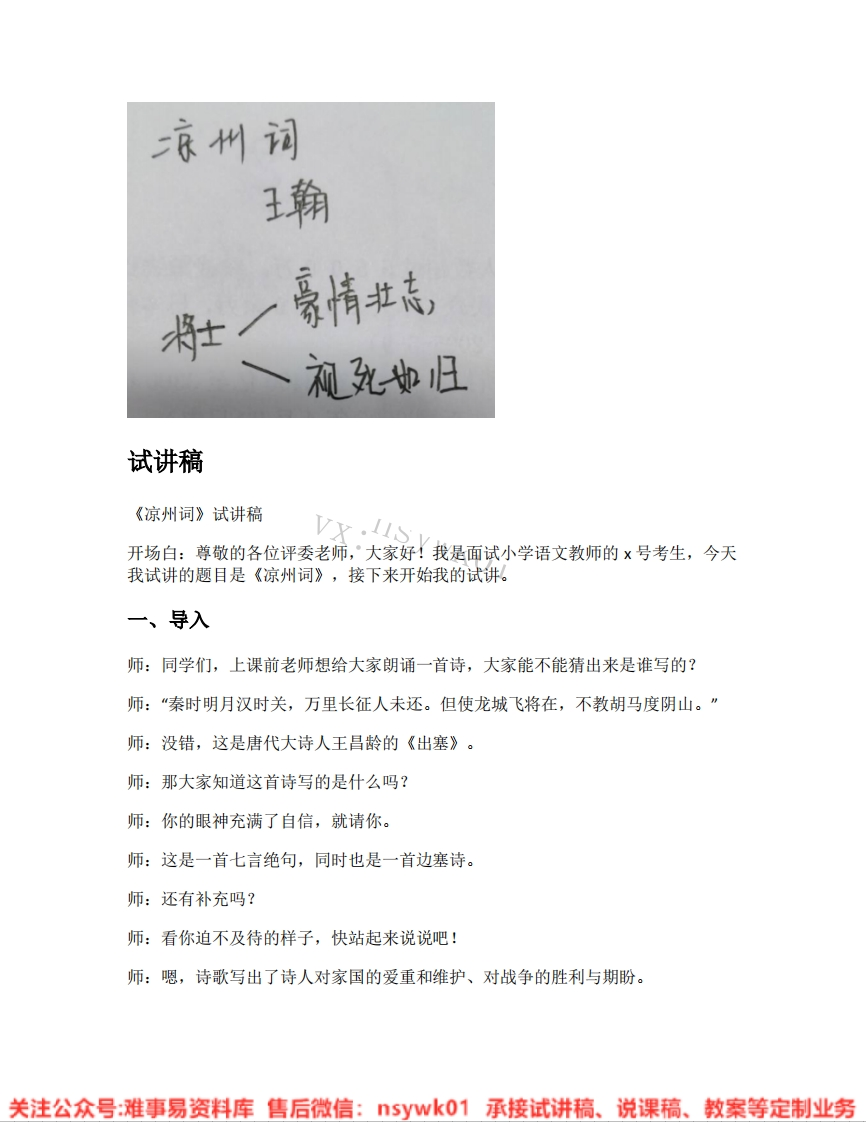 凉州词
王翰
将士
豪情壮志,
视死如归
试讲稿
《凉州词》试讲稿
vx:nsywk01
开场白：尊敬的各位评委老师，大家好！我是面试小学语文教师的 x 号考生，今天
我试讲的题目是《凉州词》，接下来开始我的试讲。
一、导入
师：同学们，上课前老师想给大家朗诵一首诗，大家能不能猜出来是谁写的？
师：“秦时明月汉时关，万里长征人未还。但使龙城飞将在，不教胡马度阴山。”
师：没错，这是唐代大诗人王昌龄的《出塞》。
师：那大家知道这首诗写的是什么吗？
师：你的眼神充满了自信，就请你。
师：这是一首七言绝句，同时也是一首边塞诗。
师：还有补充吗？
师：看你迫不及待的样子，快站起来说说吧！
师：嗯，诗歌写出了诗人对家国的爱重和维护、对战争的胜利与期盼。
关注公众号:难事易资料库 售后微信：nsywk01 承接试讲稿、说课稿、教案等定制业务